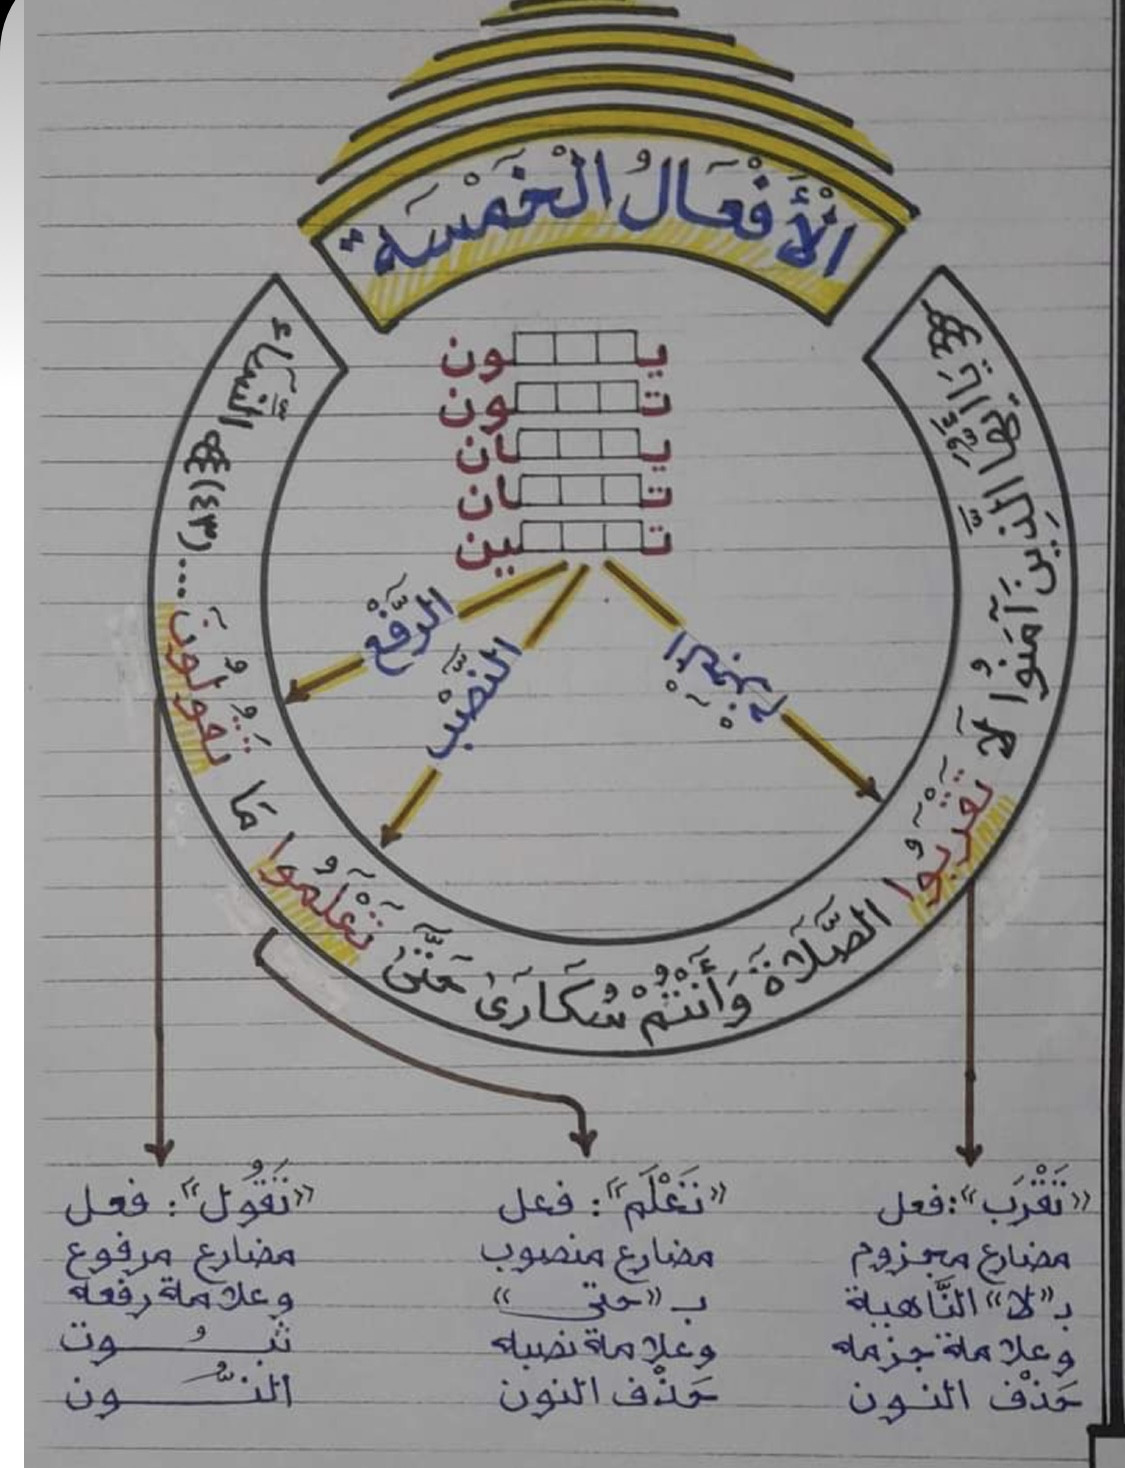 الْأَفْعَالُ الْخَمْسَة
يـ ـون
تـ ـون
يـ ـان
تـ ـان
تـ ـين
الرَّفْع
النَّصْب
الجَزْم
يَاأَيُّهَا الَّذِينَ آمَنُوا لَا تَقْرَبُوا الصَّلَاةَ وَأَنْتُمْ سُكَارَىٰ حَتَّىٰ تَعْلَمُوا مَا تَقُولُونَ ... (٤٣) النِّسَاء
«تَقْرَب»: فعل
مضارع مجزوم
بـ «لا» النَّاهية
وعلامة جزمه
حَذْف النون
«تَعْلَم»: فعل
مضارع منصوب
بـ «حتى»
وعلامة نصبه
حَذْف النون
«تَقُول»: فعل
مضارع مرفوع
وعلامة رفعه
ثبـــُـوت
النـــُّـون